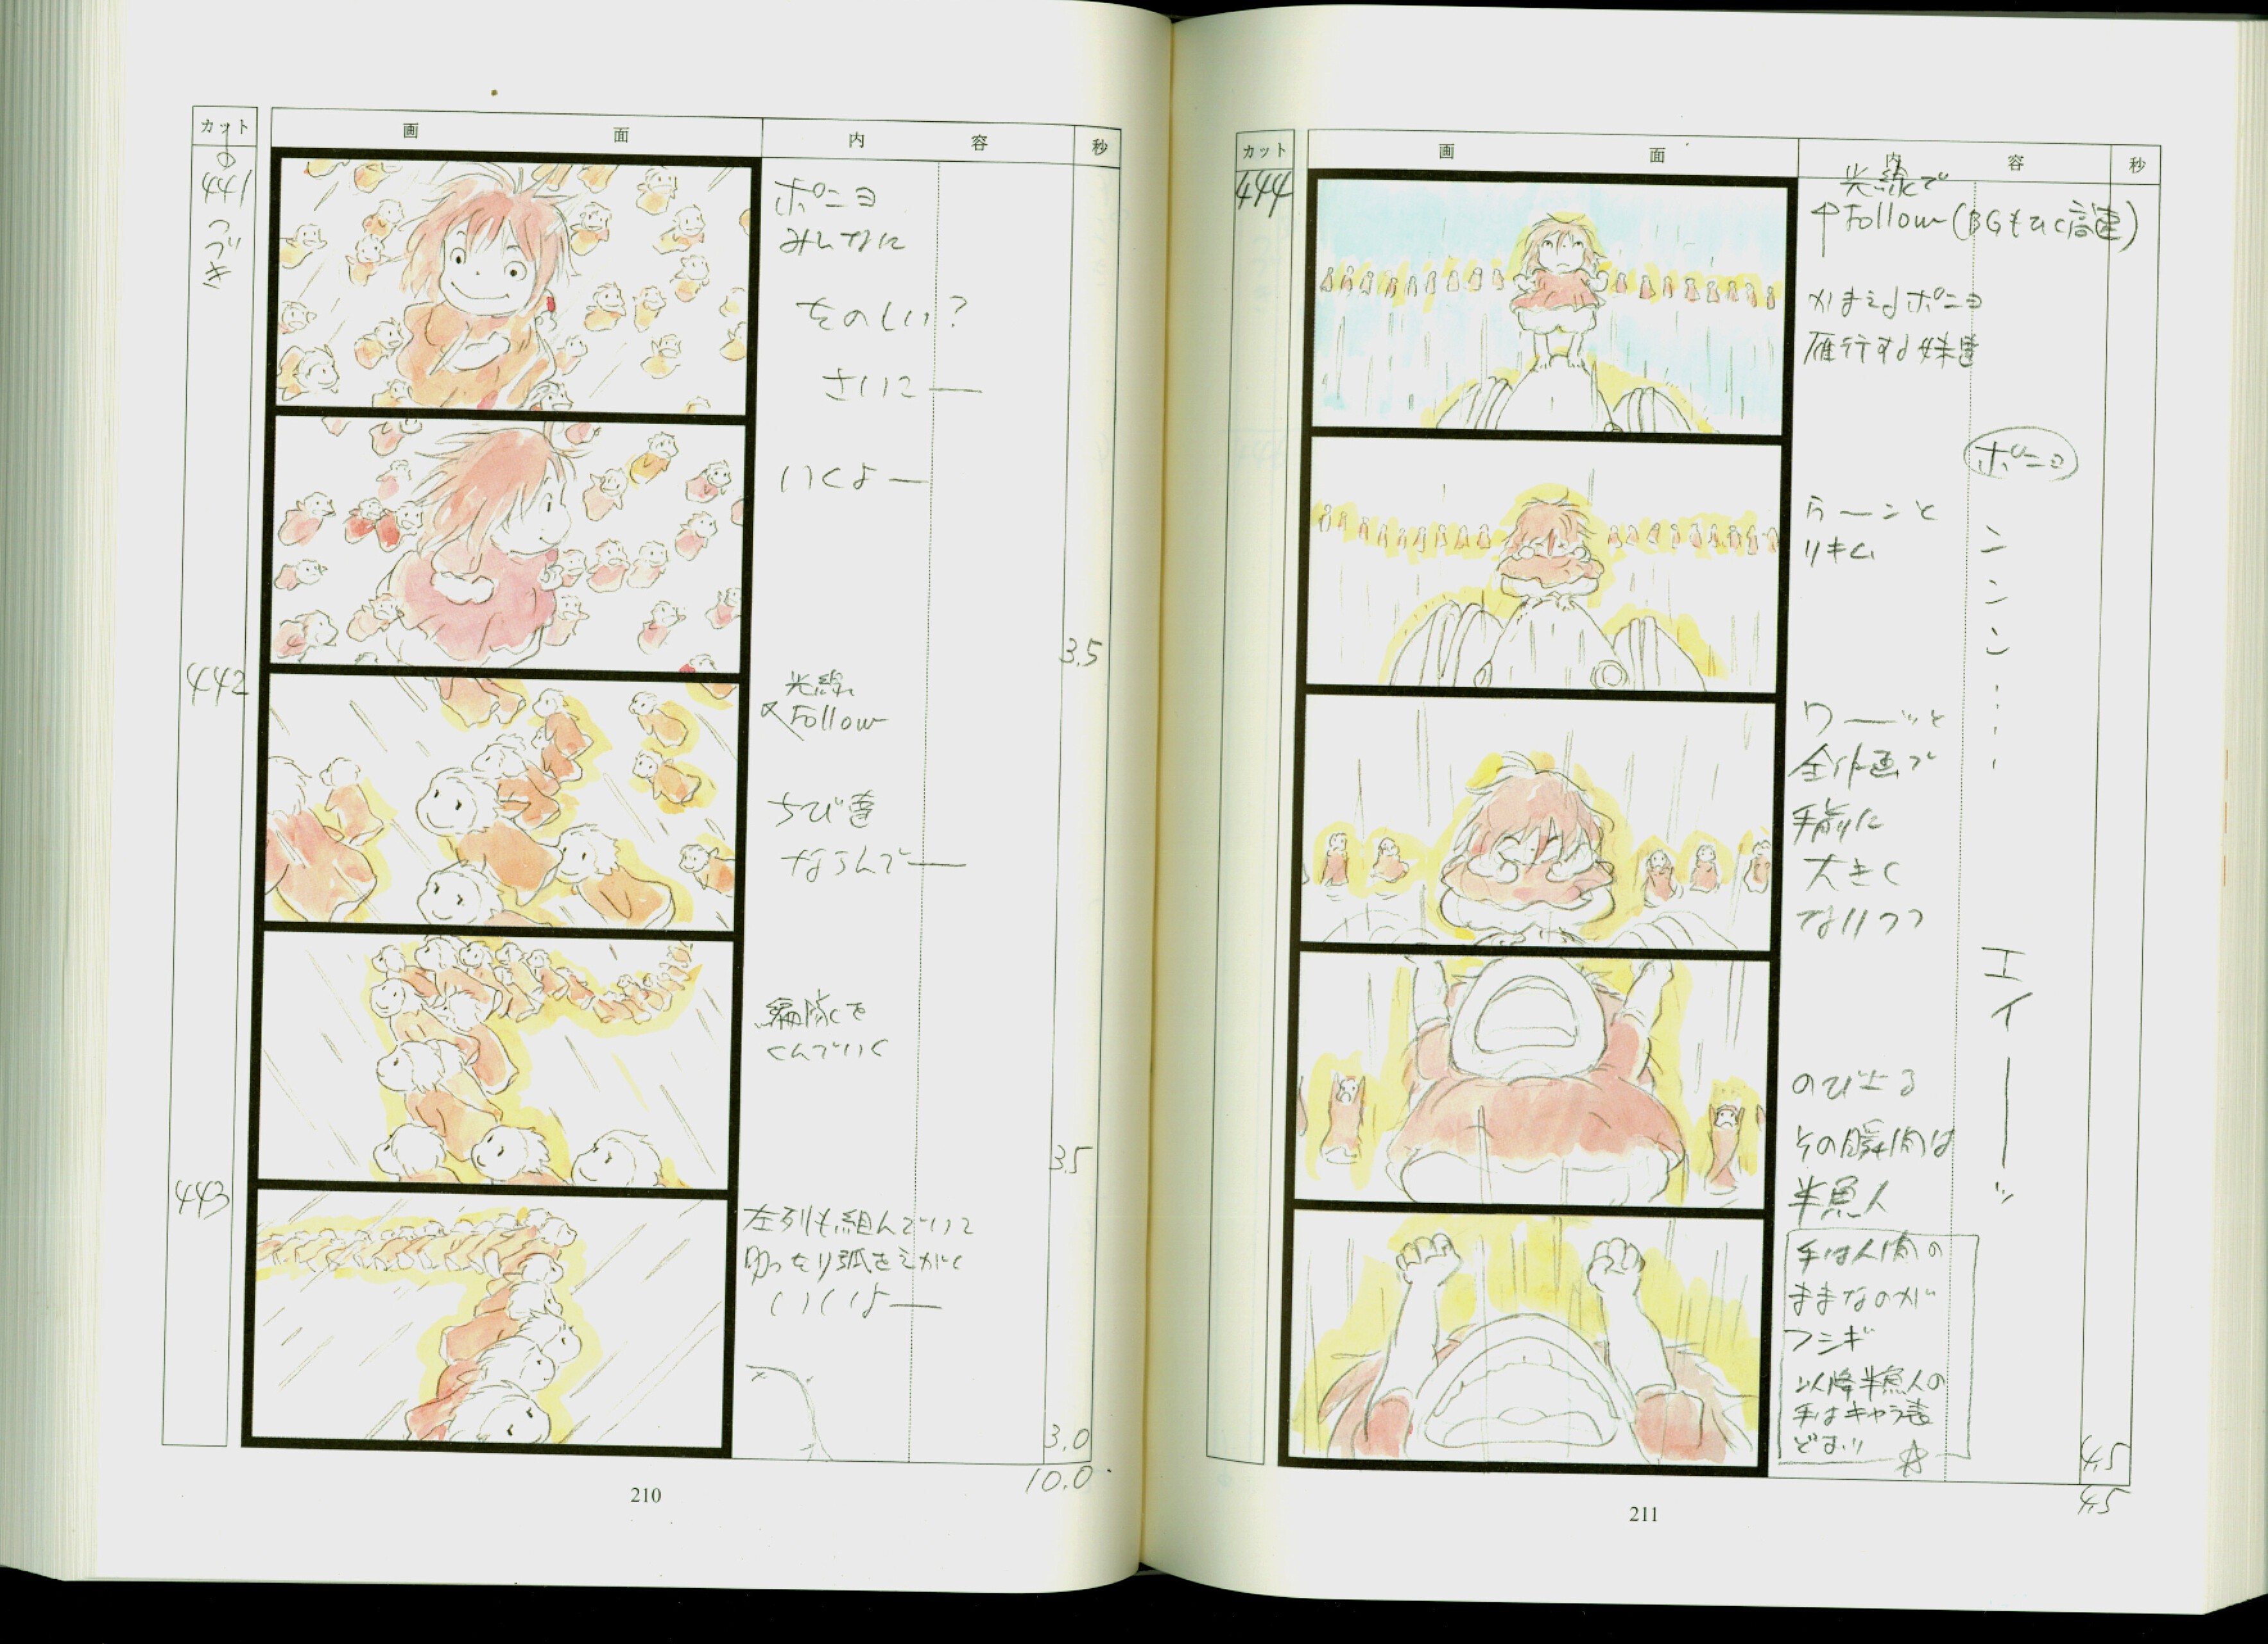 カット 画 面 内 容 秒
441
つづき
ポニョ
みんなに
たのしい?
さいこ—
いくよ—
3.5
442
光線
Follow
ちび達
ならんで—
編隊を
くんでいく
3.5
443
左列も組んでいて
ゆったり弧をえがく
いくよ—
3.0
10.0
210
カット 画 面 内 容 秒
444
光線で
↑Follow (BGもひく高速)
かまえるポニョ
雁行する妹達
ポニョ
ウーンと
リキむ
ン
ン
ン
ワ—ッと
全作画で
手前に
大きく
なりつつ
エイ—ッ
のび上る
その瞬間は
半魚人
手は人間の
ままなのが
フシギ
以降半魚人の
手はキャラ表
どおり ☆
4.5
4.5
211